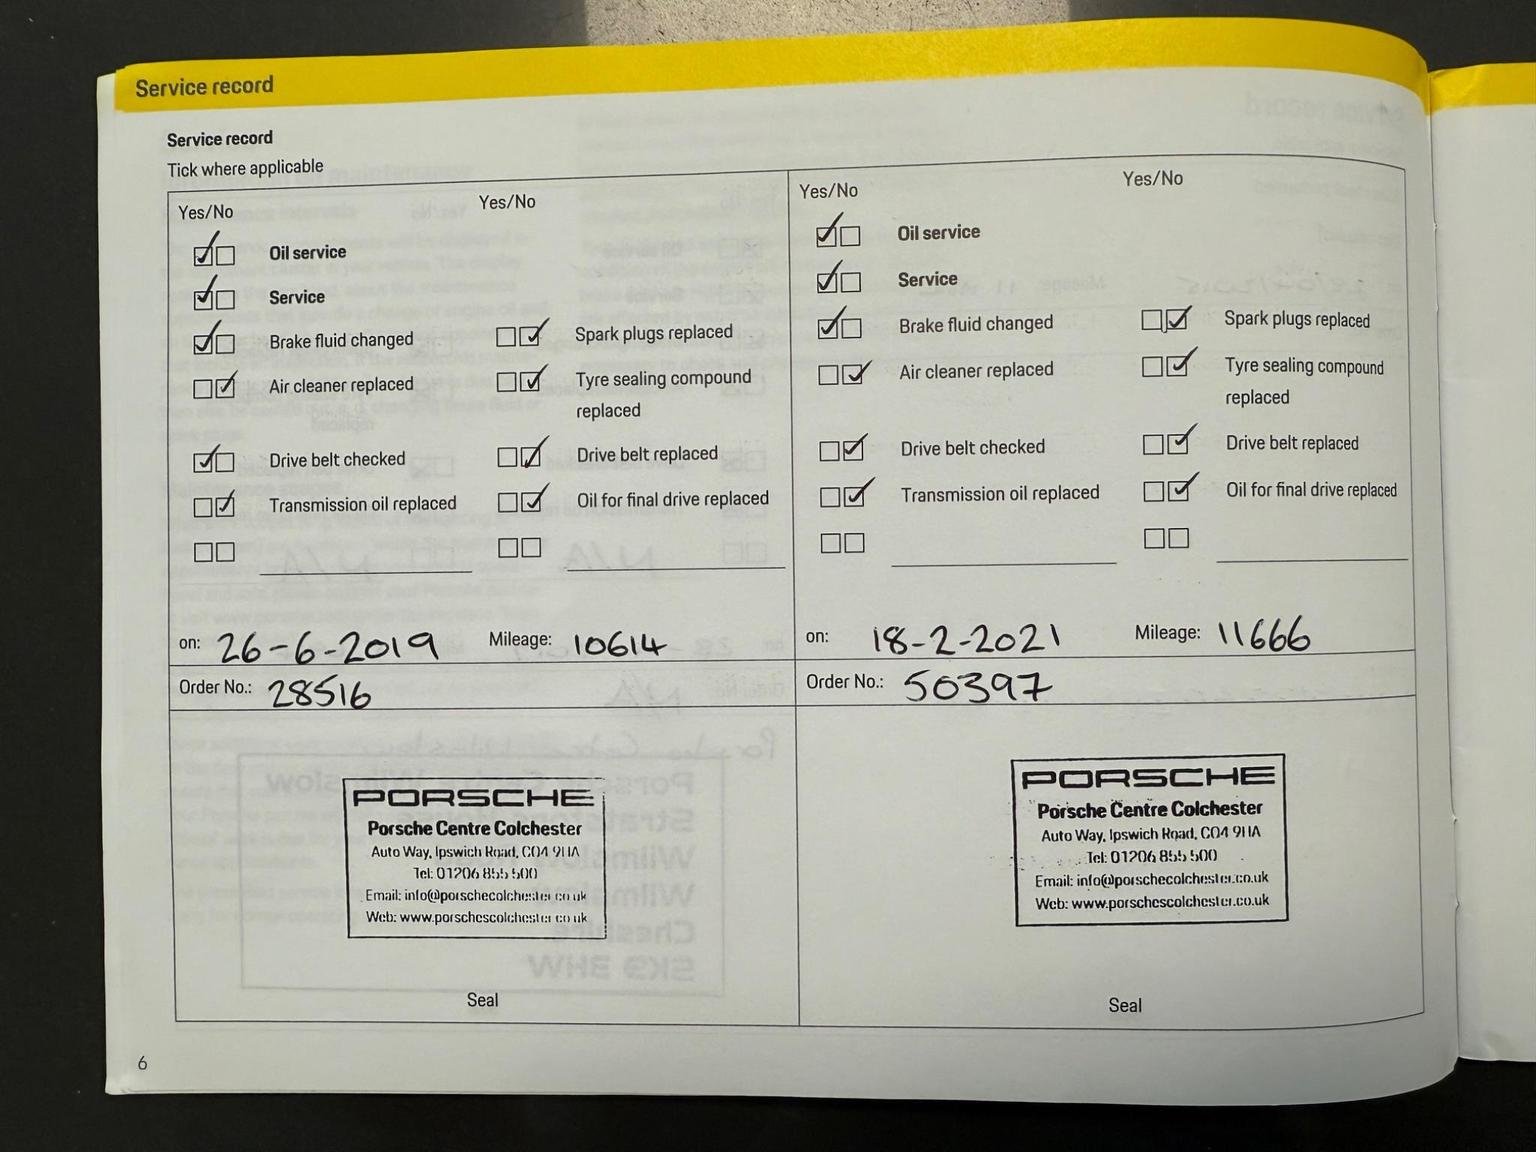 Service record
Service record
Tick where applicable
Yes/No Yes/No
Oil service
Service
Brake fluid changed Spark plugs replaced
Air cleaner replaced Tyre sealing compound
replaced
Drive belt checked Drive belt replaced
Transmission oil replaced Oil for final drive replaced
on: 26-6-2019 Mileage: 10614
Order No.: 28516
PORSCHE
Porsche Centre Colchester
Auto Way, Ipswich Road, CO4 9HA
Tel: 01206 855 500
Email: info@porschecolchester.co.uk
Web: www.porschescolchester.co.uk
Seal
Yes/No Yes/No
Oil service
Service
Brake fluid changed Spark plugs replaced
Air cleaner replaced Tyre sealing compound
replaced
Drive belt checked Drive belt replaced
Transmission oil replaced Oil for final drive replaced
on: 18-2-2021 Mileage: 11666
Order No.: 50397
PORSCHE
Porsche Centre Colchester
Auto Way, Ipswich Road, CO4 9HA
Tel: 01206 855 500
Email: info@porschecolchester.co.uk
Web: www.porschescolchester.co.uk
Seal
6